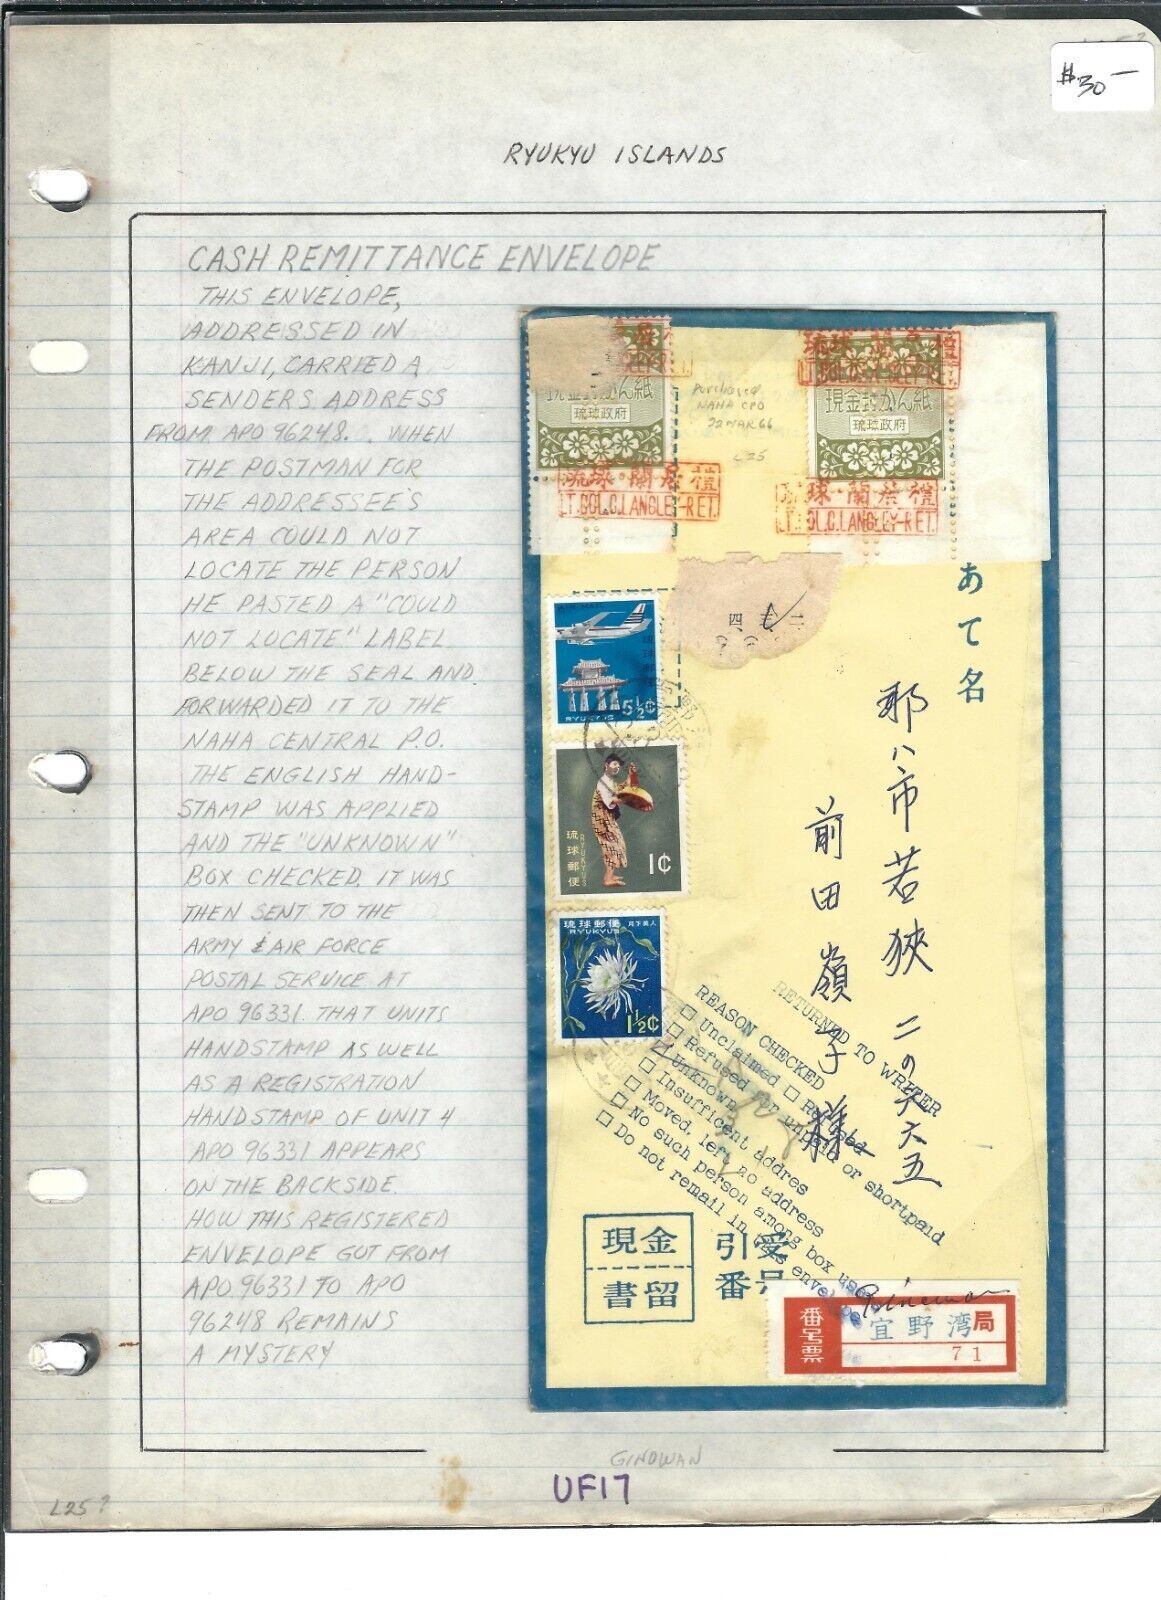 $30—
RYUKYU ISLANDS
CASH REMITTANCE ENVELOPE
THIS ENVELOPE,
ADDRESSED IN
KANJI, CARRIED A
SENDERS ADDRESS
FROM APO 96248. WHEN
THE POSTMAN FOR
THE ADDRESSEE'S
AREA COULD NOT
LOCATE THE PERSON
HE PASTED A "COULD
NOT LOCATE" LABEL
BELOW THE SEAL AND
FORWARDED IT TO THE
NAHA CENTRAL P.O.
THE ENGLISH HAND-
STAMP WAS APPLIED
AND THE "UNKNOWN"
BOX CHECKED. IT WAS
THEN SENT TO THE
ARMY & AIR FORCE
POSTAL SERVICE AT
APO 96331. THAT UNITS
HANDSTAMP AS WELL
AS A REGISTRATION
HANDSTAMP OF UNIT 4
APO 96331 APPEARS
ON THE BACKSIDE.
HOW THIS REGISTERED
ENVELOPE GOT FROM
APO 96331 TO APO
96248 REMAINS
A MYSTERY
現金封かん紙
琉球政府
Purchased
NAHA CPO
22 MAR 66
L25
現金封かん紙
琉球政府
琉球・蘭居禮
LT.COL.C.LANGLEY-RET.
球・蘭居禮
LT.COL.C.LANGLEY-RET.
AIR MAIL
琉球郵便
5½¢
RYUKYUS
琉球郵便
RYUKYUS
1¢
琉球郵便 月下美人
RYUKYUS
1½¢
四
あて名
那八市若狭二の六六五
前田嶺子様
RETURNED TO WRITER
REASON CHECKED
□ Unclaimed □ Refused
□ Refused for unpaid or shortpaid
□ Unknown
□ Insufficent addres
□ Moved, left no address
□ No such person among box users
□ Do not remail in this envelope
現金
書留
引受
番号
Ginowan
番号票
宜野湾局
71
GINOWAN
UF17
L25?